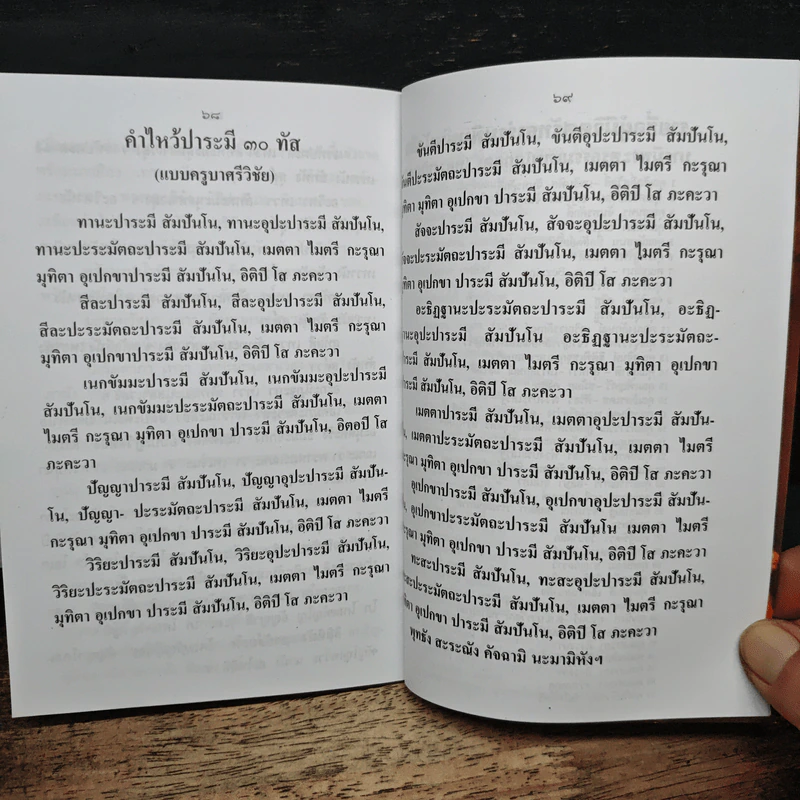 ๖๘
คำไหว้ปาระมี ๓๐ ทัส
(แบบครูบาศรีวิชัย)
ทานะปาระมี สัมปันโน, ทานะอุปะปาระมี สัมปันโน,
ทานะปะระมัตถะปาระมี สัมปันโน, เมตตา ไมตรี กะรุณา
มุทิตา อุเปกขาปาระมี สัมปันโน, อิติปิ โส ภะคะวา
สีละปาระมี สัมปันโน, สีละอุปะปาระมี สัมปันโน,
สีละปะระมัตถะปาระมี สัมปันโน, เมตตา ไมตรี กะรุณา
มุทิตา อุเปกขาปาระมี สัมปันโน, อิติปิ โส ภะคะวา
เนกขัมมะปาระมี สัมปันโน, เนกขัมมะอุปะปาระมี
สัมปันโน, เนกขัมมะปะระมัตถะปาระมี สัมปันโน, เมตตา
ไมตรี กะรุณา มุทิตา อุเปกขา ปาระมี สัมปันโน, อิตอปิ โส
ภะคะวา
ปัญญาปาระมี สัมปันโน, ปัญญาอุปะปาระมี สัมปัน-
โน, ปัญญา- ปะระมัตถะปาระมี สัมปันโน, เมตตา ไมตรี
กะรุณา มุทิตา อุเปกขา ปาระมี สัมปันโน, อิติปิ โส ภะคะวา
วิริยะปาระมี สัมปันโน, วิริยะอุปะปาระมี สัมปันโน,
วิริยะปะระมัตถะปาระมี สัมปันโน, เมตตา ไมตรี กะรุณา
มุทิตา อุเปกขา ปาระมี สัมปันโน, อิติปิ โส ภะคะวา
๖๙
ขันตีปาระมี สัมปันโน, ขันตีอุปะปาระมี สัมปันโน,
ขันตีปะระมัตถะปาระมี สัมปันโน, เมตตา ไมตรี กะรุณา
มุทิตา อุเปกขา ปาระมี สัมปันโน, อิติปิ โส ภะคะวา
สัจจะปาระมี สัมปันโน, สัจจะอุปะปาระมี สัมปันโน,
สัจจะปะระมัตถะปาระมี สัมปันโน, เมตตา ไมตรี กะรุณา
มุทิตา อุเปกขา ปาระมี สัมปันโน, อิติปิ โส ภะคะวา
อะธิฏฐานะปะระมัตถะปาระมี สัมปันโน, อะธิฏ-
ฐานะอุปะปาระมี สัมปันโน อะธิฏฐานะปะระมัตถะ-
ปาระมี สัมปันโน, เมตตา ไมตรี กะรุณา มุทิตา อุเปกขา
ปาระมี สัมปันโน, อิติปิ โส ภะคะวา
เมตตาปาระมี สัมปันโน, เมตตาอุปะปาระมี สัมปัน-
โน, เมตตาปะระมัตถะปาระมี สัมปันโน, เมตตา ไมตรี
กะรุณา มุทิตา อุเปกขา ปาระมี สัมปันโน, อิติปิ โส ภะคะวา
อุเปกขาปาระมี สัมปันโน, อุเปกขาอุปะปาระมี สัมปัน-
โน, อุเปกขาปะระมัตถะปาระมี สัมปันโน เมตตา ไมตรี
กะรุณา มุทิตา อุเปกขา ปาระมี สัมปันโน, อิติปิ โส ภะคะวา
ทะสะปาระมี สัมปันโน, ทะสะอุปะปาระมี สัมปันโน,
ทะสะปะระมัตถะปาระมี สัมปันโน, เมตตา ไมตรี กะรุณา
มุทิตา อุเปกขา ปาระมี สัมปันโน, อิติปิ โส ภะคะวา
พุทธัง สะระณัง คัจฉามิ นะมามิหังฯ